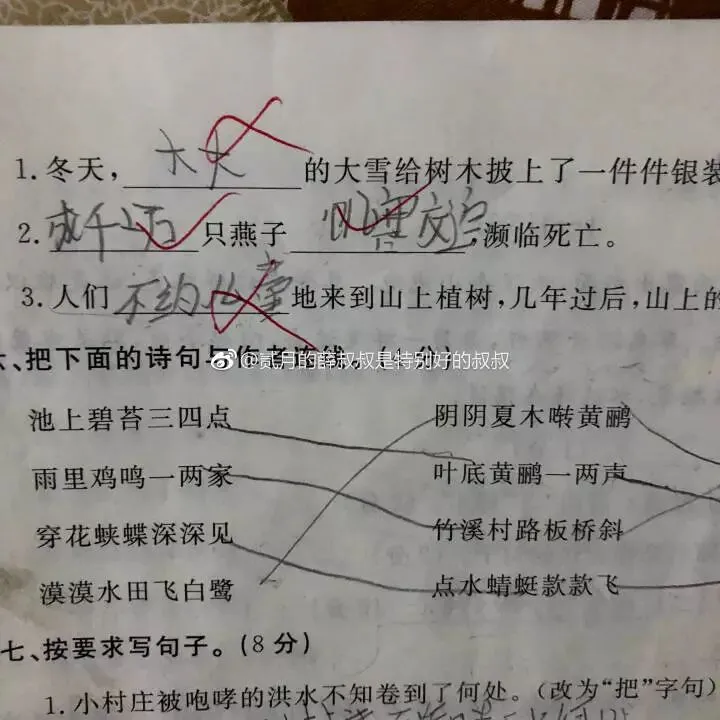 1.冬天,大大的大雪给树木披上了一件件银装
2.成千上万只燕子饥寒交迫,濒临死亡。
3.人们不约地来到山上植树,几年过后,山上的
六、把下面的诗句与作者连线。(4分)
@贰月的薛叔叔是特别好的叔叔
池上碧苔三四点 阴阴夏木啭黄鹂
雨里鸡鸣一两家 叶底黄鹂一两声
穿花蛱蝶深深见 竹溪村路板桥斜
漠漠水田飞白鹭 点水蜻蜓款款飞
七、按要求写句子。(8分)
1.小村庄被咆哮的洪水不知卷到了何处。(改为“把”字句)